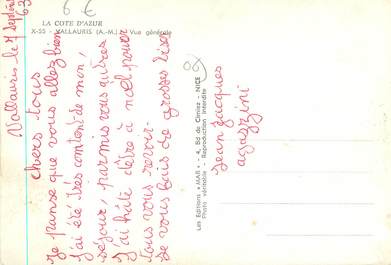 6 €
LA COTE D'AZUR
X-55 - VALLAURIS (A.-M.) - Vue générale
Vallauris le 7 Septembre
63
chers tous
Je panse que vous allez bien
j'ai été très content de mon
séjour, parmis vous
J'ai hate d'être à noel pour
tous vous revoir-
Je vous fais de grosses bises
Jean Jacques
agazzini
Les Editions "MAR" - 4, Bd de Cimiez - NICE
Photo véritable - Reproduction interdite